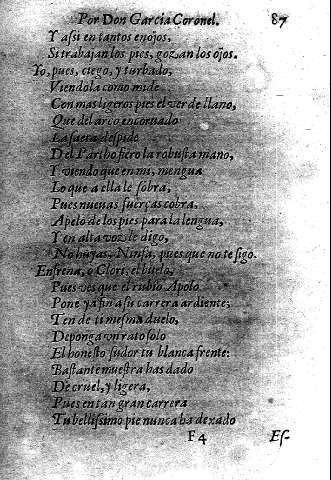 Por Don Garcia Coronel. 87
Y assi en tantos enojos,
Si trabajan los pies, gozan los ojos.
Yo, pues, ciego, y turbado,
Viendola como mide
Con mas ligeros pies el verde llano,
Que del arco encornado
La saeta despide
Del Partho fiero la robusta mano,
Y viendo que en mi, mengua
Lo que a ella le sobra,
Pues nueuas fuerças cobra,
Apelo de los pies para la lengua,
Y en alta voz le digo,
No huyas, Ninfa, pues que no te sigo.
Enfrena, o Clori, el buelo,
Pues ves que el rubio Apolo
Pone ya fin a su carrera ardiente;
Ten de ti mesma duelo,
Deponga vn rato solo
El honesto sudor tu blanca frente:
Bastante muestra has dado
De cruel, y ligera,
Pues en tan gran carrera
Tu bellissimo pie nunca ha dexado
F 4 Es-